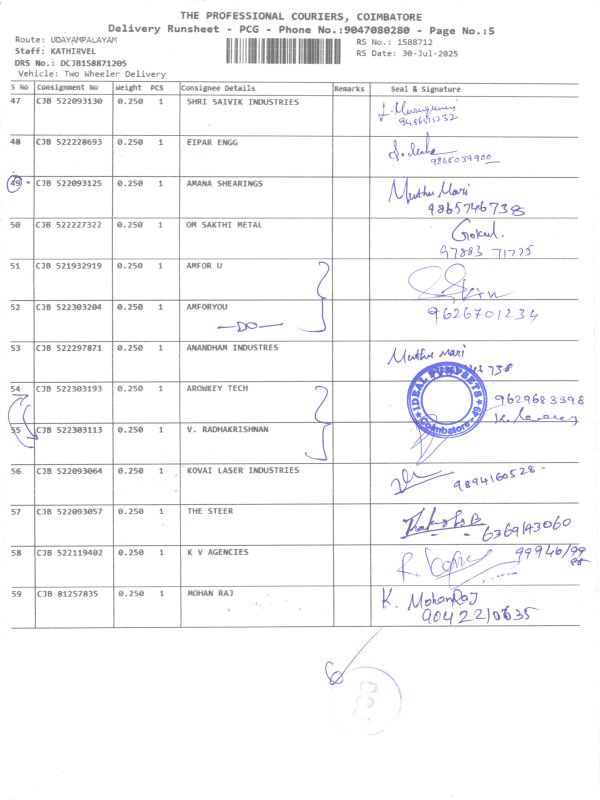 THE PROFESSIONAL COURIERS, COIMBATORE
Delivery Runsheet - PCG - Phone No.:9047080280 - Page No.:5
Route: UDAYAMPALAYAM
RS No.: 1588712
Staff: KATHIRVEL
RS Date: 30-Jul-2025
DRS No.: DCJB158871205
Vehicle: Two Wheeler Delivery
S No Consignment No Weight PCS Consignee Details Remarks Seal & Signature
47 CJB 522093130 0.250 1 SHRI SAIVIK INDUSTRIES
48 CJB 522228693 0.250 1 EIPAR ENGG
9865039900
49 CJB 522093125 0.250 1 AMANA SHEARINGS Muthu Mari
9865746738
50 CJB 522227322 0.250 1 OM SAKTHI METAL Gokul.
97883 71775
51 CJB 521932919 0.250 1 AMFOR U
52 CJB 522303204 0.250 1 AMFORYOU 9626701234
—DO—
53 CJB 522297871 0.250 1 ANANDHAM INDUSTRES Muthu Mari
738
54 CJB 522303193 0.250 1 AROWKEY TECH IDEAL Coimbatore 9629683398
55 CJB 522303113 0.250 1 V. RADHAKRISHNAN
56 CJB 522093064 0.250 1 KOVAI LASER INDUSTRIES 9894160528
57 CJB 522093057 0.250 1 THE STEER
6369143060
58 CJB 522119402 0.250 1 K V AGENCIES
59 CJB 81257835 0.250 1 MOHAN RAJ K. MohanRaj
9042210635